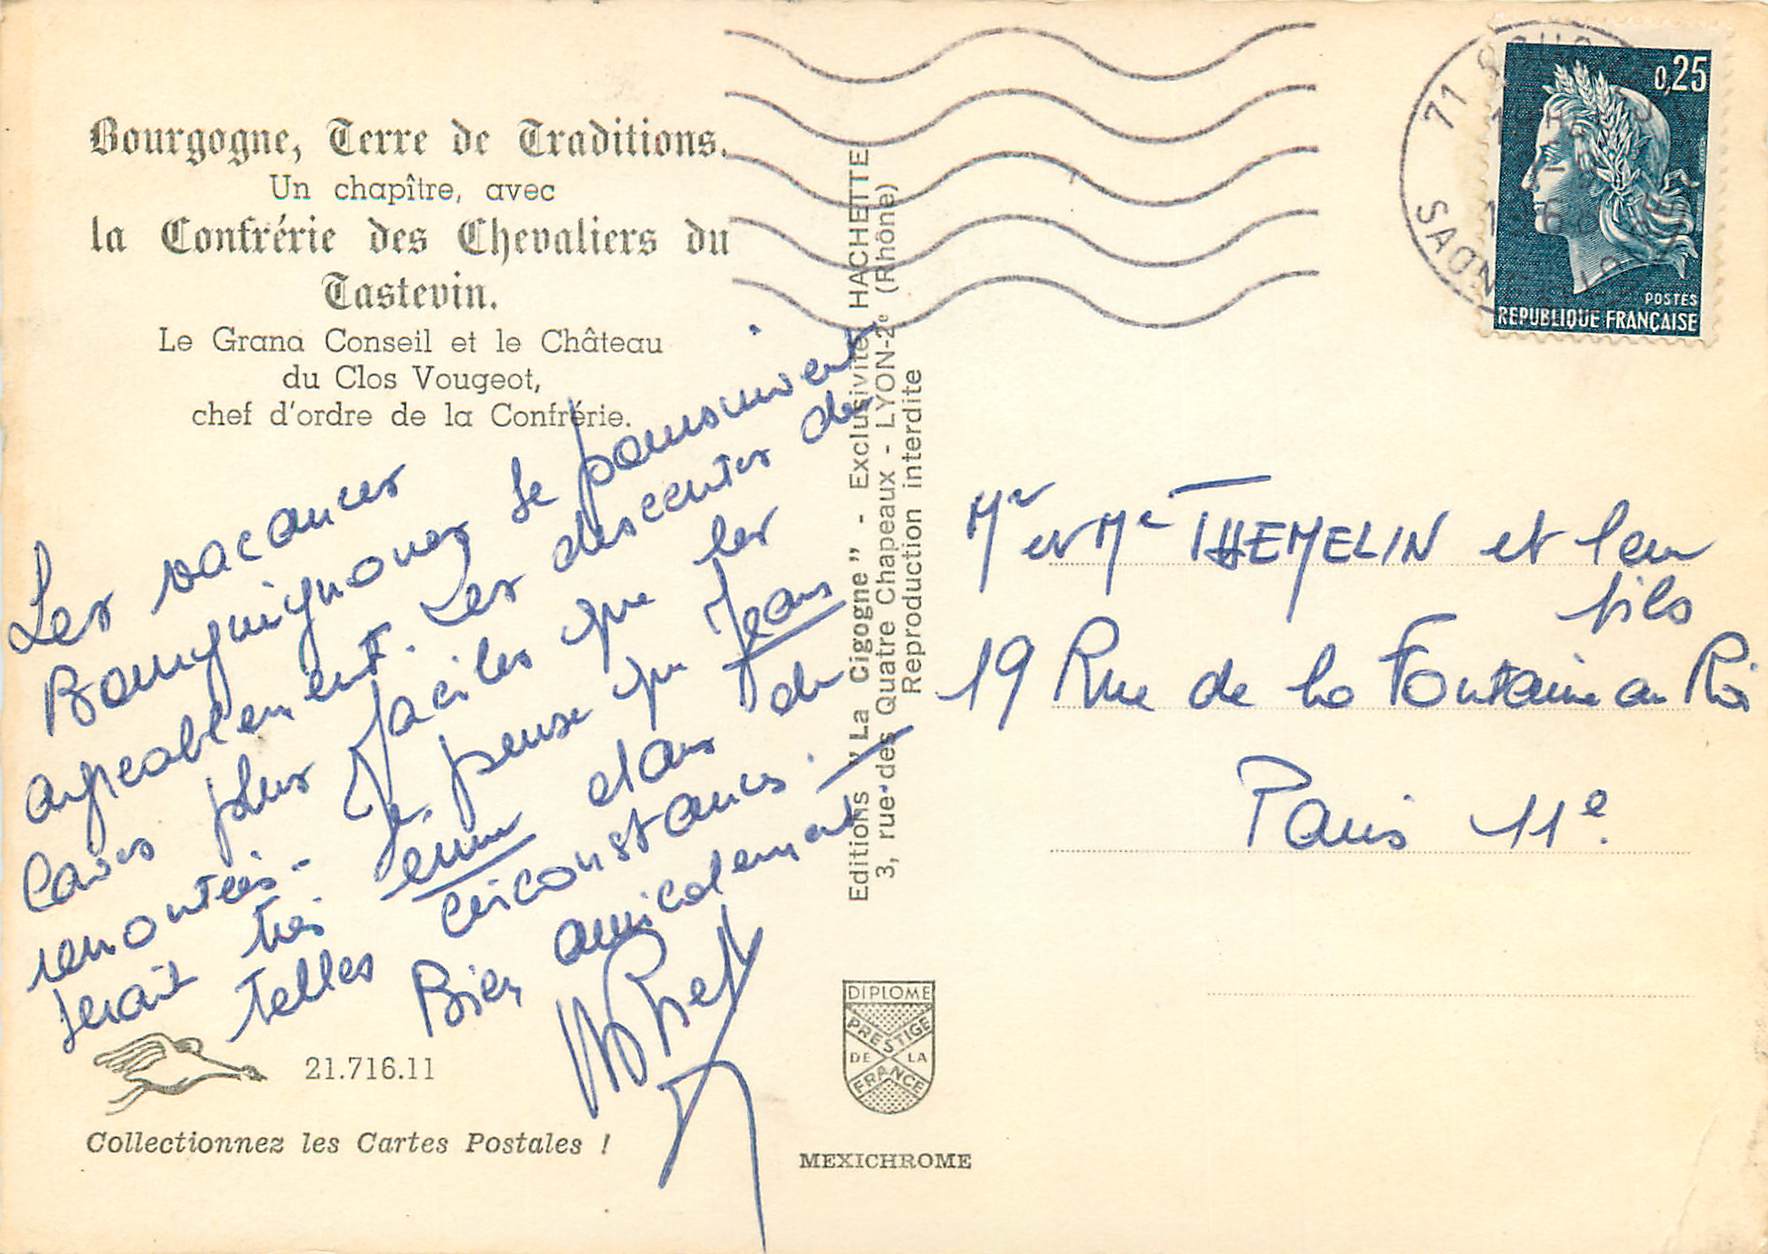 Bourgogne, Terre de Traditions.
Un chapître, avec
la Confrérie des Chevaliers du
Tastevin.
Le Grand Conseil et le Château
du Clos Vougeot,
chef d'ordre de la Confrérie.
Les vacances
Bourguignonnes se poursuivent
agréablement. Les descentes des
Caves plus faciles que les
remontées. Je pense que Jean
serait très ému dans de
telles circonstances.
Bien amicalement
21.716.11
Collectionnez les Cartes Postales !
Editions "La Cigogne" - Exclusivité HACHETTE
3, rue des Quatre Chapeaux - LYON-2e (Rhône)
Reproduction interdite
DIPLOME
PRESTIGE
DE LA
FRANCE
MEXICHROME
71
SAONE
0,25
POSTES
REPUBLIQUE FRANÇAISE
Mr et Me THEMELIN et leur
fils
19 Rue de la Fontaine au Roi
Paris 11e.